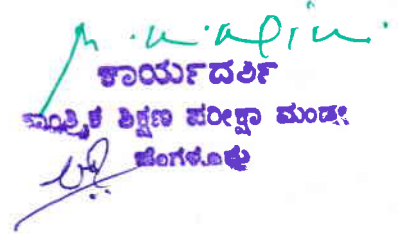 ಕಾರ್ಯದರ್ಶಿ
ತಾಂತ್ರಿಕ ಶಿಕ್ಷಣ ಪರೀಕ್ಷಾ ಮಂಡಳಿ
ಬೆಂಗಳೂರು